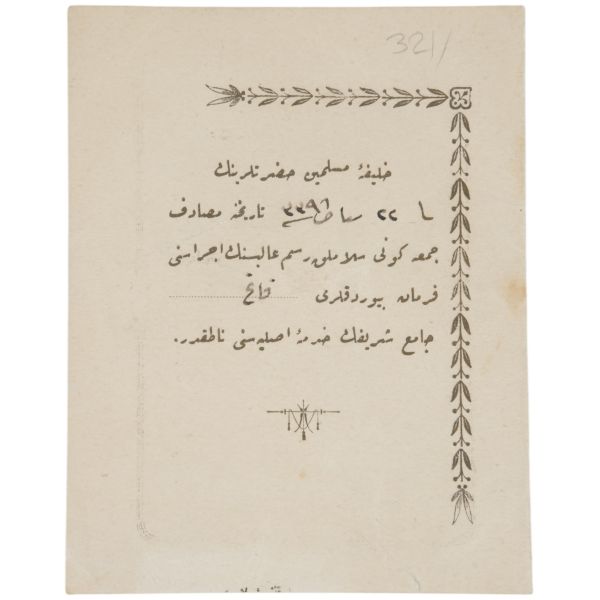 321/
خلیفهٔ مسلمین حضرتلرینك
٢٢ تاریخنه مصادف
جمعه کونی سلاملق رسم عالیسنك اجراسنی
فرمان بیوردقلری فاتح
جامع شریفك خدمهٔ اصلیه سنی ناطقدر.